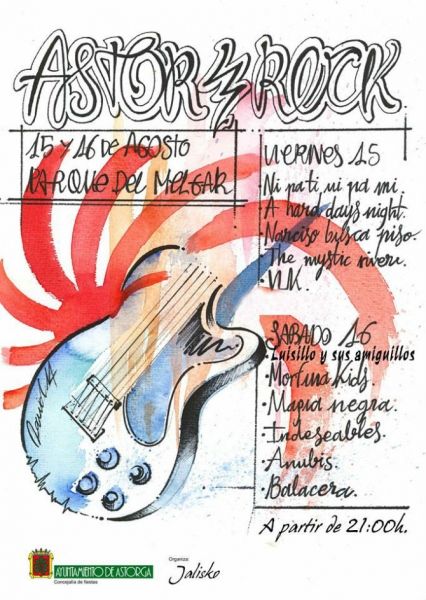 ASTOR ROCK
15 Y 16 DE AGOSTO
PARQUE DEL MELGAR
VIERNES 15
Ni pa ti ni pa mi.
A hard days night.
Narciso busca piso.
The mystic rivers.
VLK.
SABADO 16
·Luisillo y sus amiguillos
·Morfina Kids.
·Magia negra.
·Indeseables.
·Anubis.
·Balacera.
A partir de 21:00h.
AYUNTAMIENTO DE ASTORGA
Concejalía de fiestas
Organiza:
Jalisko